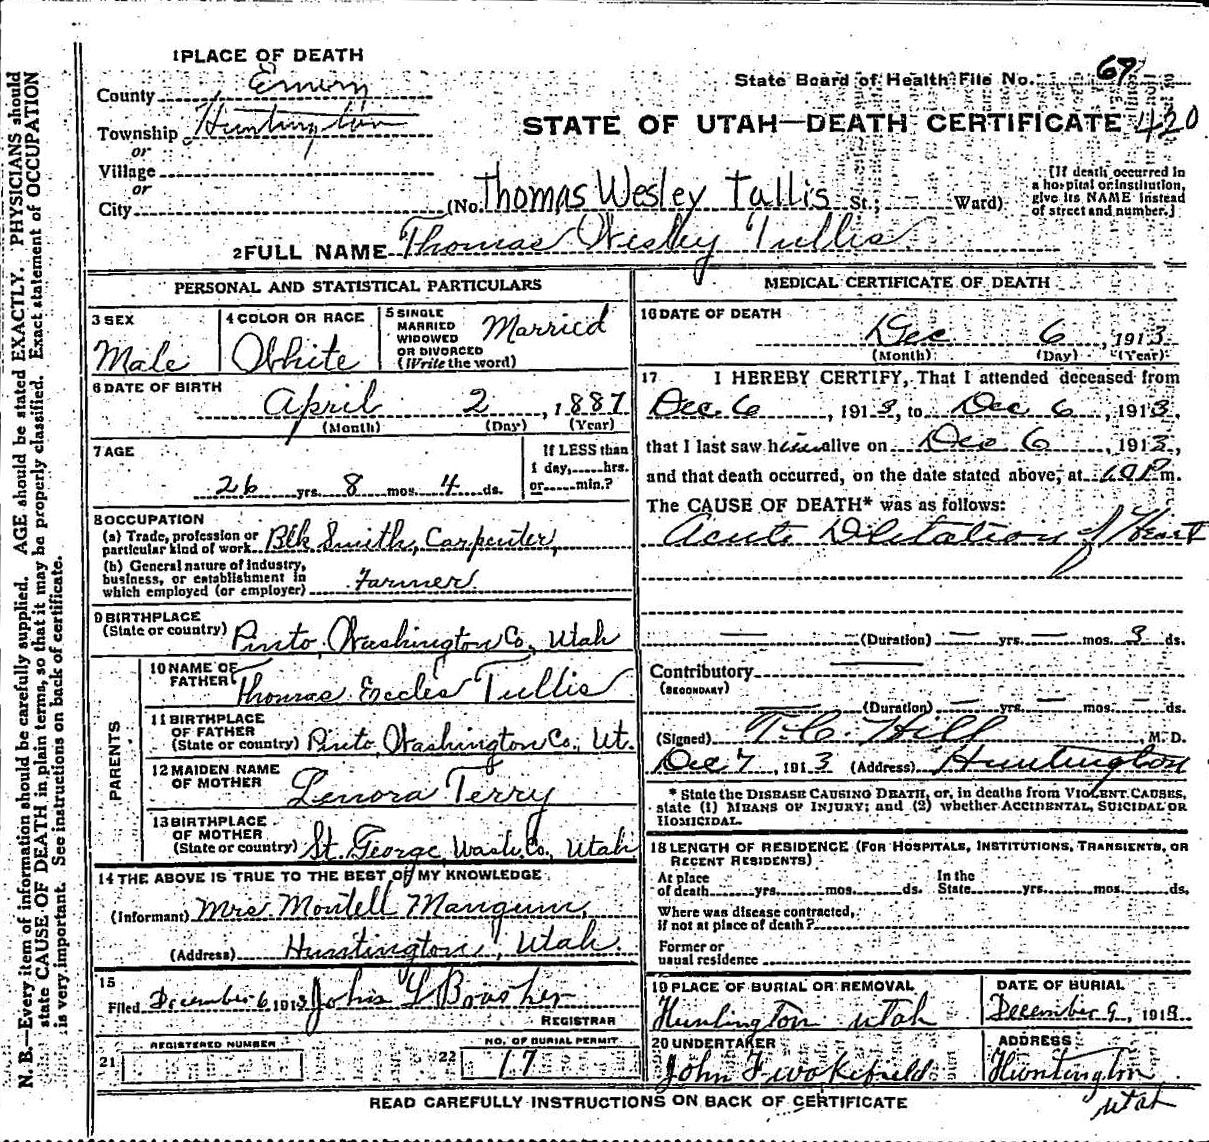 1 PLACE OF DEATH
County Emery
Township Huntington
or
Village
or
City
State Board of Health File No. 67
STATE OF UTAH—DEATH CERTIFICATE 420
(No. Thomas Wesley Tullis St.; Ward)
[If death occurred in
a hospital or institution,
give its NAME instead
of street and number.]
2 FULL NAME Thomas Wesley Tullis
PERSONAL AND STATISTICAL PARTICULARS
3 SEX
Male
4 COLOR OR RACE
White
5 SINGLE
MARRIED
WIDOWED
OR DIVORCED
(Write the word)
Married
6 DATE OF BIRTH
April 2, 1887
(Month) (Day) (Year)
7 AGE
26 yrs. 8 mos. 4 ds.
If LESS than
1 day,......hrs.
or......min.?
8 OCCUPATION
(a) Trade, profession or
particular kind of work Blk Smith, Carpenter,
(b) General nature of industry,
business, or establishment in
which employed (or employer) Farmer.
9 BIRTHPLACE
(State or country) Pinto, Washington Co., Utah
PARENTS
10 NAME OF
FATHER Thomas Eccles Tullis
11 BIRTHPLACE
OF FATHER
(State or country) Pinto, Washington Co., Ut.
12 MAIDEN NAME
OF MOTHER Lenora Terry
13 BIRTHPLACE
OF MOTHER
(State or country) St. George, Wash. Co., Utah
14 THE ABOVE IS TRUE TO THE BEST OF MY KNOWLEDGE
(Informant) Mrs Montell Mangum,
(Address) Huntington, Utah.
15
Filed December 6, 1913 John L Brasher
REGISTRAR
REGISTERED NUMBER
21
NO. OF BURIAL PERMIT
22 17
MEDICAL CERTIFICATE OF DEATH
16 DATE OF DEATH
Dec 6, 1913
(Month) (Day) (Year)
17 I HEREBY CERTIFY, That I attended deceased from
Dec. 6, 1913, to Dec 6, 1913,
that I last saw him alive on Dec 6, 1913,
and that death occurred, on the date stated above, at m.
The CAUSE OF DEATH* was as follows:
Acute Dilitation of Heart
(Duration) yrs. mos. 3 ds.
Contributory
(SECONDARY)
(Duration) yrs. mos. ds.
(Signed) T. C. Hill, M. D.
Dec 7, 1913 (Address) Huntington
* State the DISEASE CAUSING DEATH, or, in deaths from VIOLENT CAUSES,
state (1) MEANS OF INJURY; and (2) whether ACCIDENTAL, SUICIDAL OR
HOMICIDAL.
18 LENGTH OF RESIDENCE (FOR HOSPITALS, INSTITUTIONS, TRANSIENTS, OR
RECENT RESIDENTS)
At place
of death......yrs......mos......ds.
In the
State......yrs......mos......ds.
Where was disease contracted,
if not at place of death?
Former or
usual residence
19 PLACE OF BURIAL OR REMOVAL
Huntington Utah
DATE OF BURIAL
December 9, 1913
20 UNDERTAKER
John F Wakefield
ADDRESS
Huntington
Utah
READ CAREFULLY INSTRUCTIONS ON BACK OF CERTIFICATE
N. B.—Every item of information should be carefully supplied. AGE should be stated EXACTLY. PHYSICIANS should
state CAUSE OF DEATH in plain terms, so that it may be properly classified. Exact statement of OCCUPATION
is very important. See instructions on back of certificate.